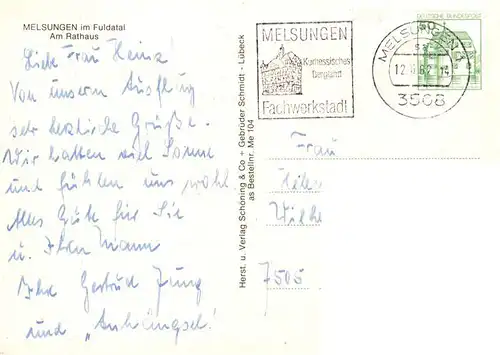 MELSUNGEN im Fuldatal
Am Rathaus
Liebe Frau Heinz!
Von unserm Ausflug
sehr herzliche Grüße.
Wir hatten viel Sonne
und fühlen uns wohl.
Alles Gute für Sie
u. Ihren Mann
Ihre Gertrud Jung
und "Anhängsel"!
Herst. u. Verlag Schöning & Co + Gebrüder Schmidt - Lübeck
as Bestellnr. Me 104
MELSUNGEN
Kurhessisches
Bergland
Fachwerkstadt
MELSUNGEN 1
12.6.82-14
3508
DEUTSCHE BUNDESPOST
Frau
7506